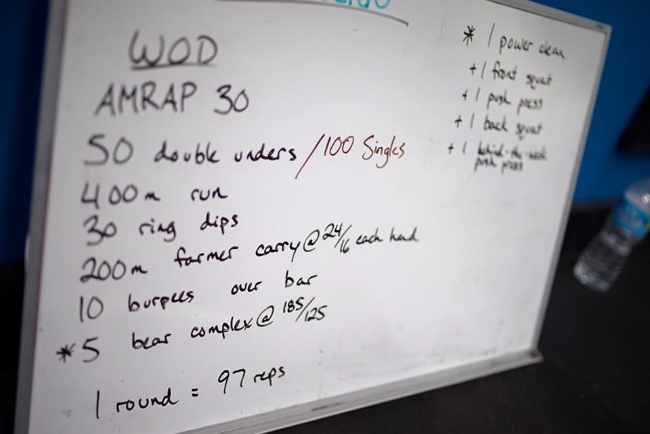 WOD
AMRAP 30
50 double unders / 100 Singles
400m run
30 ring dips
200m farmer carry @ 24/16 each hand
10 burpees over bar
*5 bear complex @ 185/125
1 round = 97 reps
* 1 power clean
+ 1 front squat
+ 1 push press
+ 1 back squat
+ 1 behind-the-neck
push press